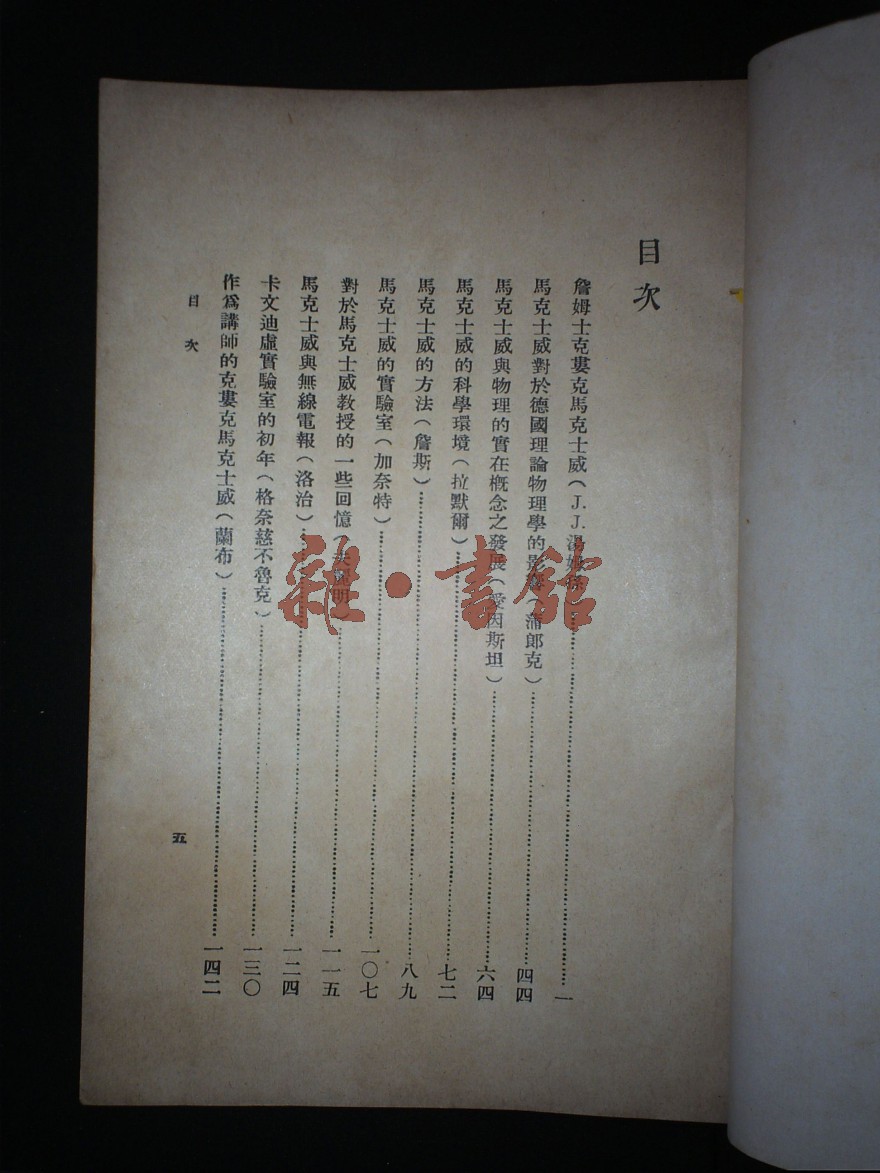 目次
詹姆士克婁克馬克士威(J.J.湯姆孫)⋯⋯一
馬克士威對於德國理論物理學的影響(蒲郎克)⋯⋯四四
馬克士威與物理的實在概念之發展(愛因斯坦)⋯⋯六四
馬克士威的科學環境(拉默爾)⋯⋯七二
馬克士威的方法(詹斯)⋯⋯八九
馬克士威的實驗室(加奈特)⋯⋯一〇七
對於馬克士威教授的一些回憶(明)⋯⋯一一五
馬克士威與無線電報(洛治)⋯⋯一二四
卡文迪虛實驗室的初年(格奈慈不魯克)⋯⋯一三〇
作爲講師的克婁克馬克士威(蘭布)⋯⋯一四二
目次
五
雜·書館